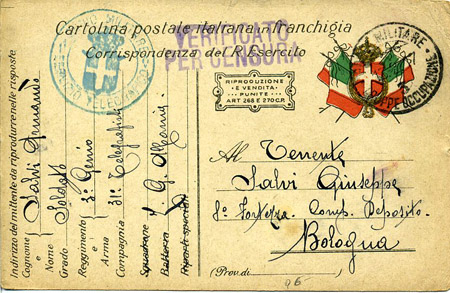 Cartolina postale italiana in franchigia
Corrispondenza del R. Esercito
VERIFICATO
PER CENSURA
MILITARE
RIPRODUZIONE
E VENDITA
PUNITE
ART. 268 E 270 C.P.
Al Tenente
Salvi Giuseppe
8° Fortezza Comp. Deposito
Bologna
(Prov. di
Indirizzo del mittente da riprodurre nelle risposte
Cognome e Nome Salvi Armando
Grado Soldato
Reggimento 3° Genio
Arma Telegrafisti
Compagnia 31ª
Squadrone
Batteria
Reparti speciali
Albania